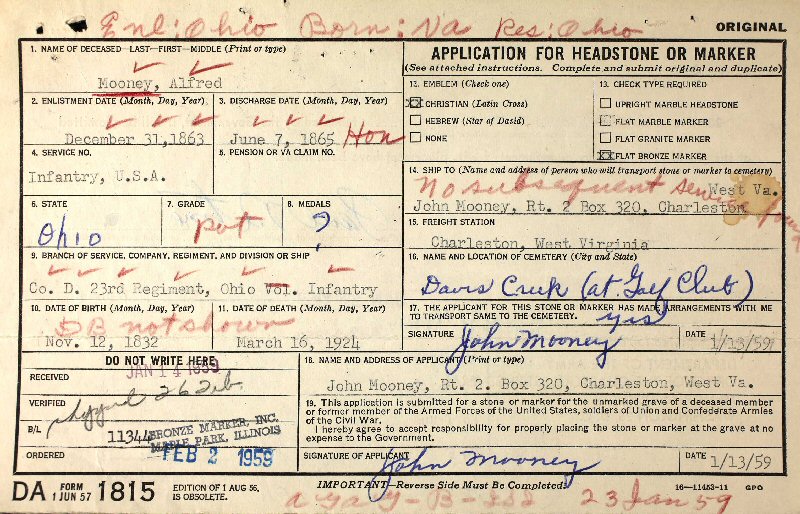 Enl: Ohio Born: Va Res: Ohio
ORIGINAL
1. NAME OF DECEASED—LAST—FIRST—MIDDLE (Print or type)
Mooney, Alfred
2. ENLISTMENT DATE (Month, Day, Year)
December 31,1863
3. DISCHARGE DATE (Month, Day, Year)
June 7, 1865 Hon
4. SERVICE NO.
Infantry, U.S.A.
5. PENSION OR VA CLAIM NO.
6. STATE
Ohio
7. GRADE
pvt
8. MEDALS
?
9. BRANCH OF SERVICE, COMPANY, REGIMENT, AND DIVISION OR SHIP
Co. D. 23rd Regiment, Ohio Vol. Infantry
10. DATE OF BIRTH (Month, Day, Year)
DB not shown
Nov. 12, 1832
11. DATE OF DEATH (Month, Day, Year)
March 16, 1924
DO NOT WRITE HERE
RECEIVED
JAN 14 1959
VERIFIED
B/L
11344
BRONZE MARKER, INC.
MAPLE PARK, ILLINOIS
ORDERED
FEB 2 1959
APPLICATION FOR HEADSTONE OR MARKER
(See attached instructions. Complete and submit original and duplicate)
13. EMBLEM (Check one)
XX CHRISTIAN (Latin Cross)
HEBREW (Star of David)
NONE
13. CHECK TYPE REQUIRED
UPRIGHT MARBLE HEADSTONE
FLAT MARBLE MARKER
FLAT GRANITE MARKER
XX FLAT BRONZE MARKER
14. SHIP TO (Name and address of person who will transport stone or marker to cemetery)
No subsequent service found
West Va.
John Mooney, Rt. 2 Box 320, Charleston
15. FREIGHT STATION
Charleston, West Virginia
16. NAME AND LOCATION OF CEMETERY (City and State)
Davis Creek (at Golf Club)
17. THE APPLICANT FOR THIS STONE OR MARKER HAS MADE ARRANGEMENTS WITH ME
TO TRANSPORT SAME TO THE CEMETERY. yes
SIGNATURE John Mooney DATE 1/13/59
18. NAME AND ADDRESS OF APPLICANT (Print or type)
John Mooney, Rt. 2. Box 320, Charleston, West Va.
19. This application is submitted for a stone or marker for the unmarked grave of a deceased member
or former member of the Armed Forces of the United States, soldiers of Union and Confederate Armies
of the Civil War.
I hereby agree to accept responsibility for properly placing the stone or marker at the grave at no
expense to the Government.
SIGNATURE OF APPLICANT John Mooney DATE 1/13/59
DA FORM 1 JUN 57 1815
EDITION OF 1 AUG 56,
IS OBSOLETE.
IMPORTANT—Reverse Side Must be Completed
16—11453-11 GPO
23 Jan 59